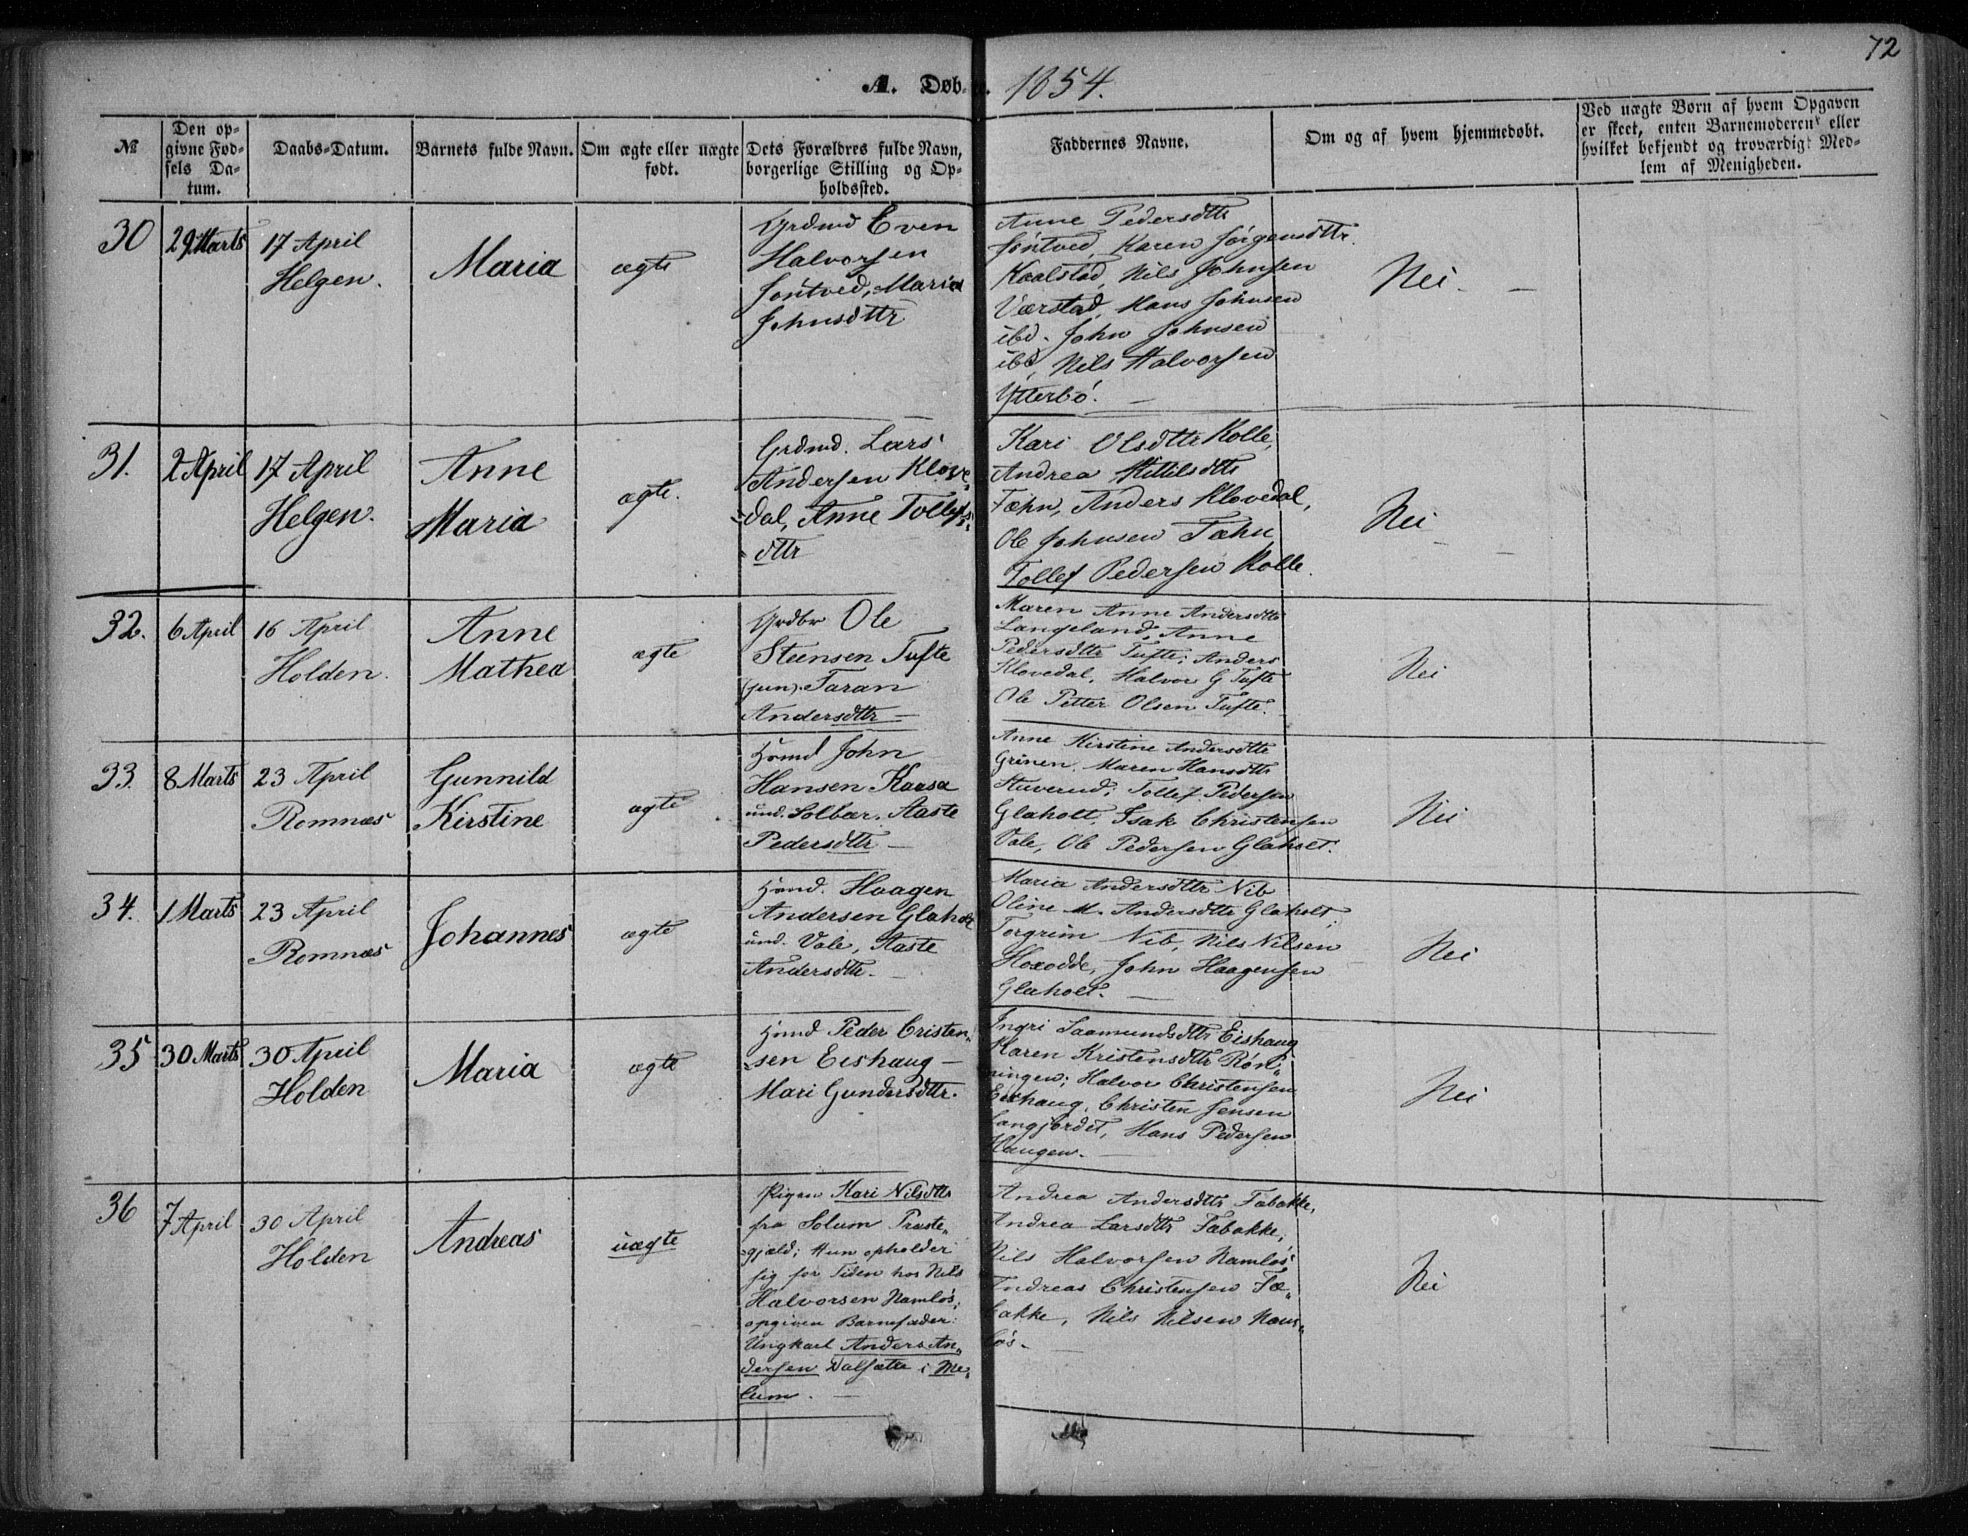 72
A. Døb. 1854.
№
Den op-
givne Fød-
sels Da-
tum.
Daabs-Datum.
Barnets fulde Navn.
Om ægte eller uægte
født.
Dets Forældres fulde Navn,
borgerlige Stilling og Op-
holdssted.
Faddernes Navne.
Om og af hvem hjemmedøbt.
Ved uægte Børn af hvem Opgaven
er skeet, enten Barnemoderen eller
hvilket bekjendt og troværdigt Med-
lem af Menigheden.
30
29 Marts
17 April
Helgen.
Maria
ægte
Grdmd Even
Halvorsen
Søntved, Maria
Johnsdttr
Anne Pedersdttr
Søntved, Karen Jørgensdttr.
Kaalstad, Nils Johnsen
Værstad, Hans Johnsen
ibd. John Johnsen
ibd, Nils Halvorsen
Ytterbø.
Nei.
31.
2 April
17 April
Helgen.
Anne
Maria
ægte.
Grdmd. Lars
Andersen Klove-
dal, Anne Tollefs-
dttr
Kari Olsdttr Kolle,
Andrea Kittilsdttr
Fæhn, Anders Klovedal,
Ole Johnsen Fæhn
Tollef Pedersen Kolle.
Nei
32.
6 April
16 April
Holden.
Anne
Mathea
ægte
Grdbr Ole
Steensen Tufte
(jun). Taran
Andersdttr
Maren Anne Andersdttr
Langeland, Anne
Pedersdttr Tufte; Anders
Klovedal, Halvor G Tufte
Ole Petter Olsen Tufte.
Nei
33.
8 Marts
23 April
Romnæs
Gunnild
Kirstine
ægte
Hsmd John
Hansen Kaasa
und. Solbær. Aaste
Pedersdttr
Anne Kirstine Andersdttr
Grinen. Maren Hansdttr
Stuverud; Tollef Pedersen
Glaholt, Isak Christensen
Vale, Ole Pedersen Glaholt.
Nei
34.
1 Marts
23 April
Romnæs
Johannes
ægte
Hsmd. Haagen
Andersen Glaholt
und. Vale, Aaste
Andersdttr.
Maria Andersdttr Nib
Oline M. Andersdttr Glaholt;
Torgrim Nib, Nils Nilsen
Hoxodde, John Haagensen
Glaholt.
Nei
35
30 Marts
30 April
Holden
Maria
ægte
Hsmd Peder Cristen-
sen Eishaug
Mari Gundersdttr.
Ingri Saamundsdttr Eishaug
Karen Kristensdttr Røn-
ningen; Halvor Christensen
Eishaug, Christen Jensen
Langjordet, Hans Pedersen
Haugen.
Nei
36
7 April
30 April
Holden
Andreas
uægte
Pigen Kari Nilsdttr
fra Solum Præste-
gjæld; Hun opholder
sig for Tiden hos Nils
Halvorsen Namløs;
opgiven Barnefader:
Ungkarl Anders An-
dersen Dalsætte i Me-
lum.
Andrea Andersdttr Fæbakke,
Andrea Larsdttr Fæbakke,
Nils Halvorsen Namløs
Andreas Christensen Fæ-
bakke, Nils Nilsen Nam-
løs.
Nei